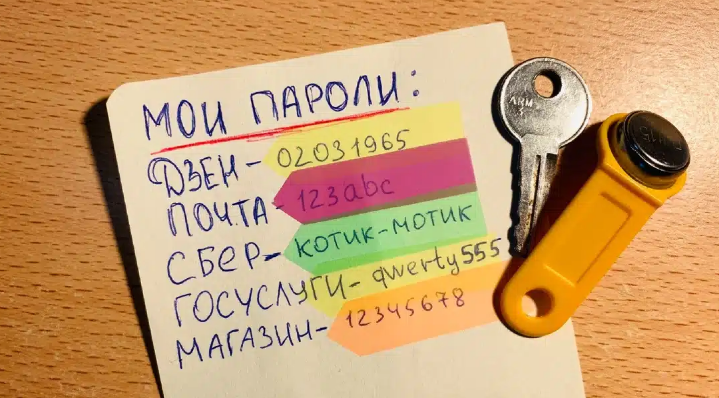 МОИ ПАРОЛИ:
ДЗЕН - 02031965
ПОЧТА - 123abc
СБЕР - КОТИК-МОТИК
ГОСУСЛУГИ - qwerty555
МАГАЗИН - 12345678